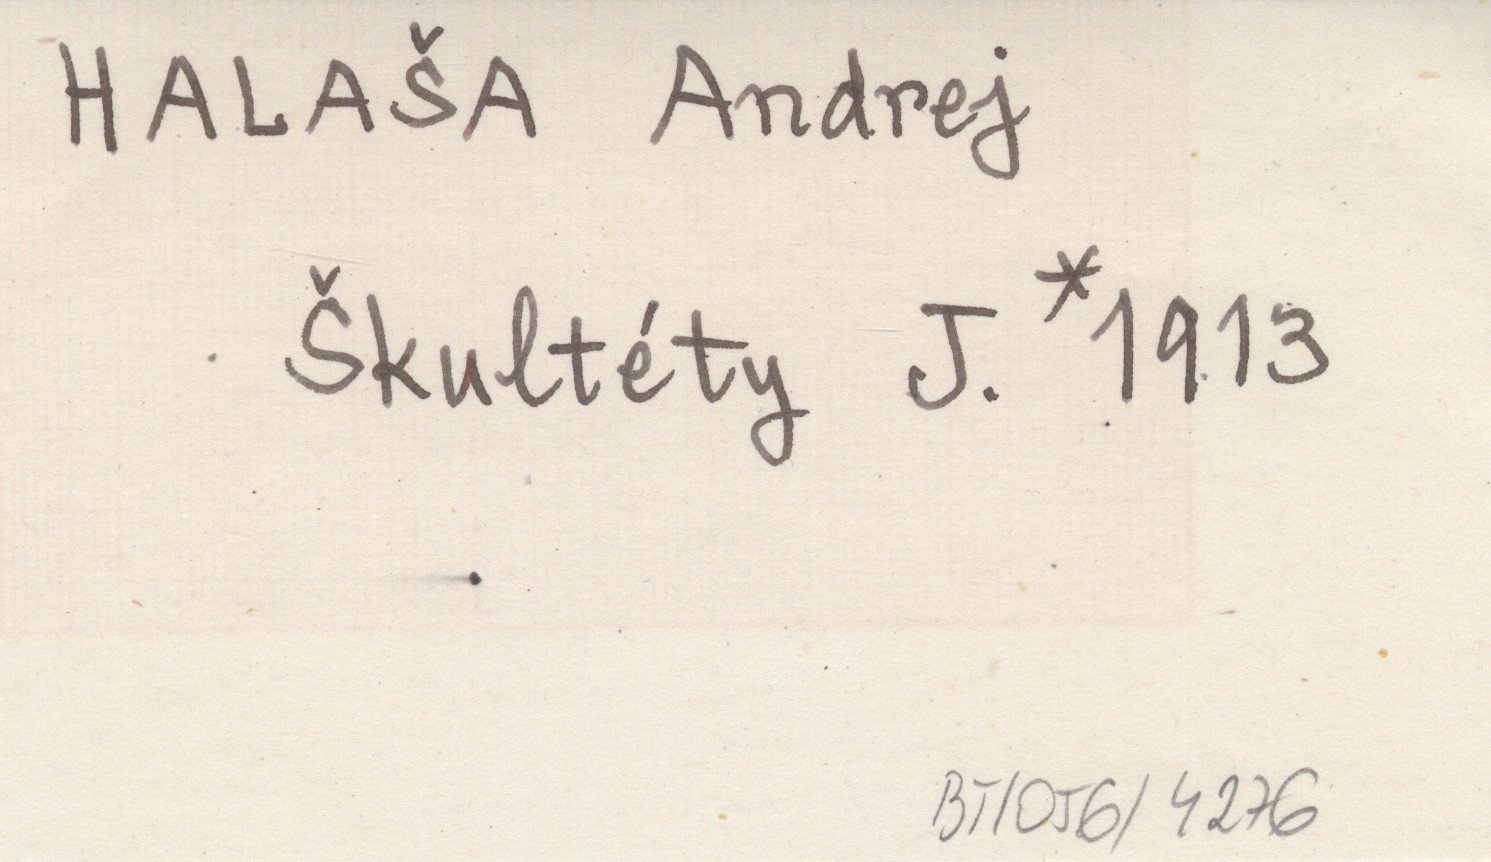 HALAŠA Andrej
Škultéty J. *1913
BT/OJ6/ 4276